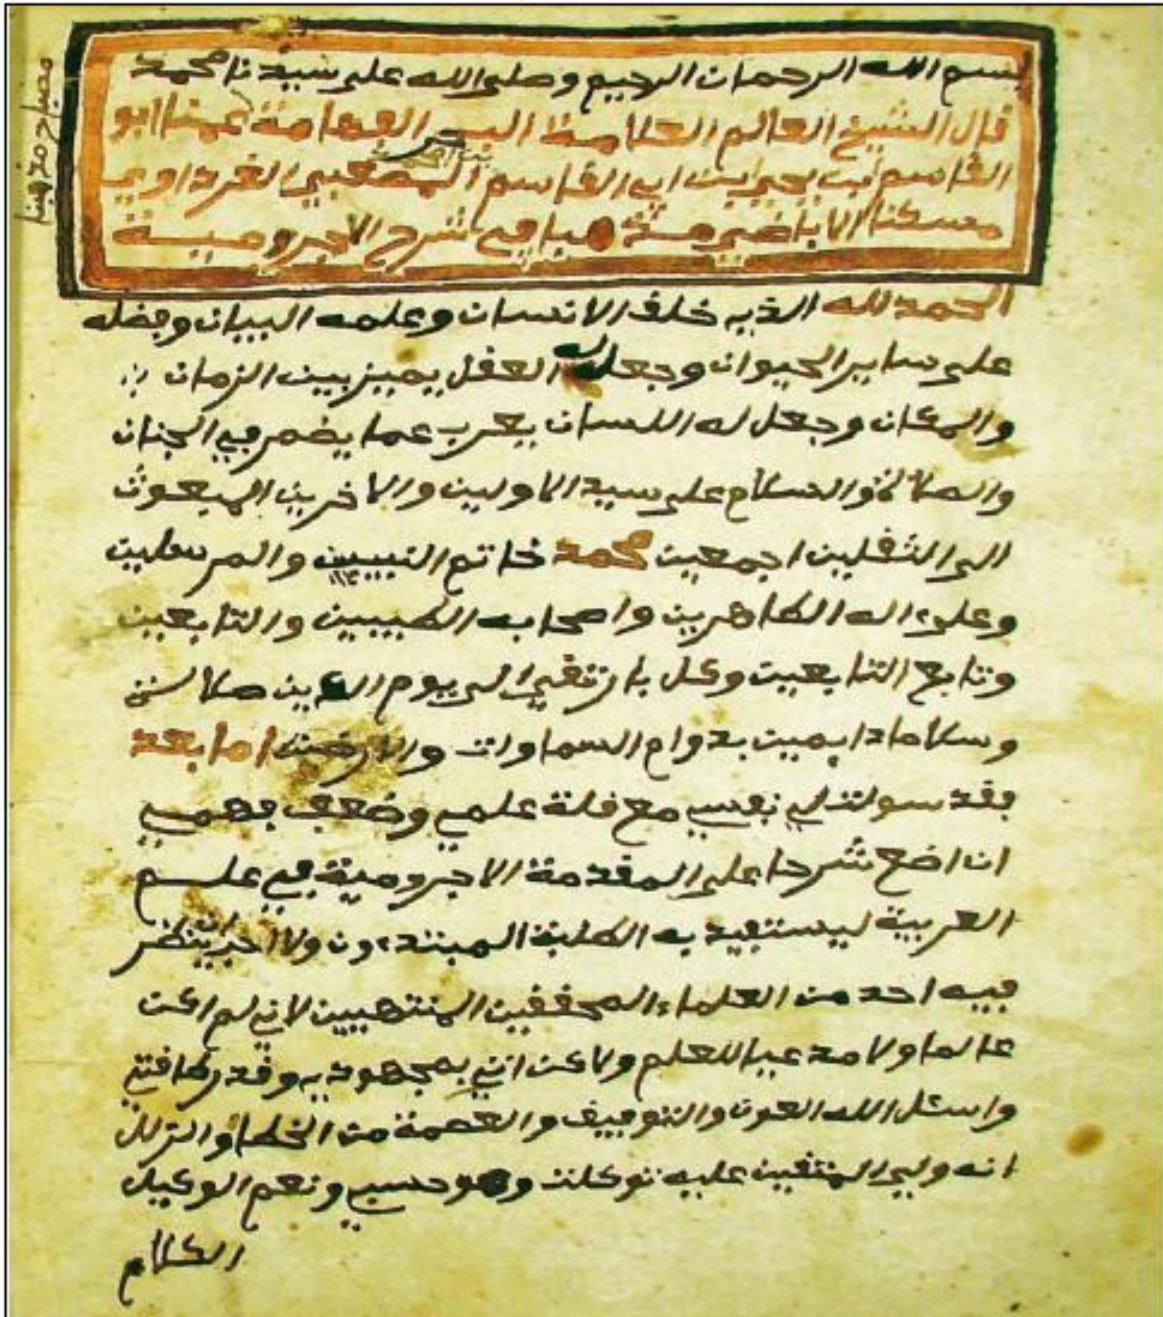 بسم الله الرحمان الرحيم وصلى الله على سيدنا محمد
قال الشيخ العالم العلامة البحر الفهامة عمنا ابو
القاسم ابن يحيى ابن ابي القاسم المصعبي الغرداوي
مسكنا الاباضي شرح الاجرومية
الحمد لله الذي خلق الانسان وعلمه البيان وفضله
على ساير الحيوان وجعل له العقل يميز بين الزمان
والمكان وجعل له اللسان يعرب عما يضمر في الجنان
والصلاة والسلام على سيد الاولين والاخرين المبعوث
الى الثقلين اجمعين محمد خاتم النبيين والمرسلين
وعلى اله الطاهرين واصحابه الطيبين والتابعين
وتابع التابعين وكل الى يوم الدين صلاة
وسلاما دايمين بدوام السماوات والارضين اما بعد
فقد سولت لي نفسي مع قلة علمي وضعف فهمي
ان اضع شرحا على المقدمة الاجرومية في علم
العربية ليستفيد به الطلبة المبتدءون ولا ان ينظر
فيه احد من العلماء المحققين المنتهيين لاني لم اكن
عالما ولا مدعيا للعلم ولاكن اتي بمجهودي وقدر طاقتي
واسئل الله العون والتوفيق والعصمة من الخطأ والزلل
انه ولي المتقين عليه توكلت وهو حسبي ونعم الوكيل
الكلام